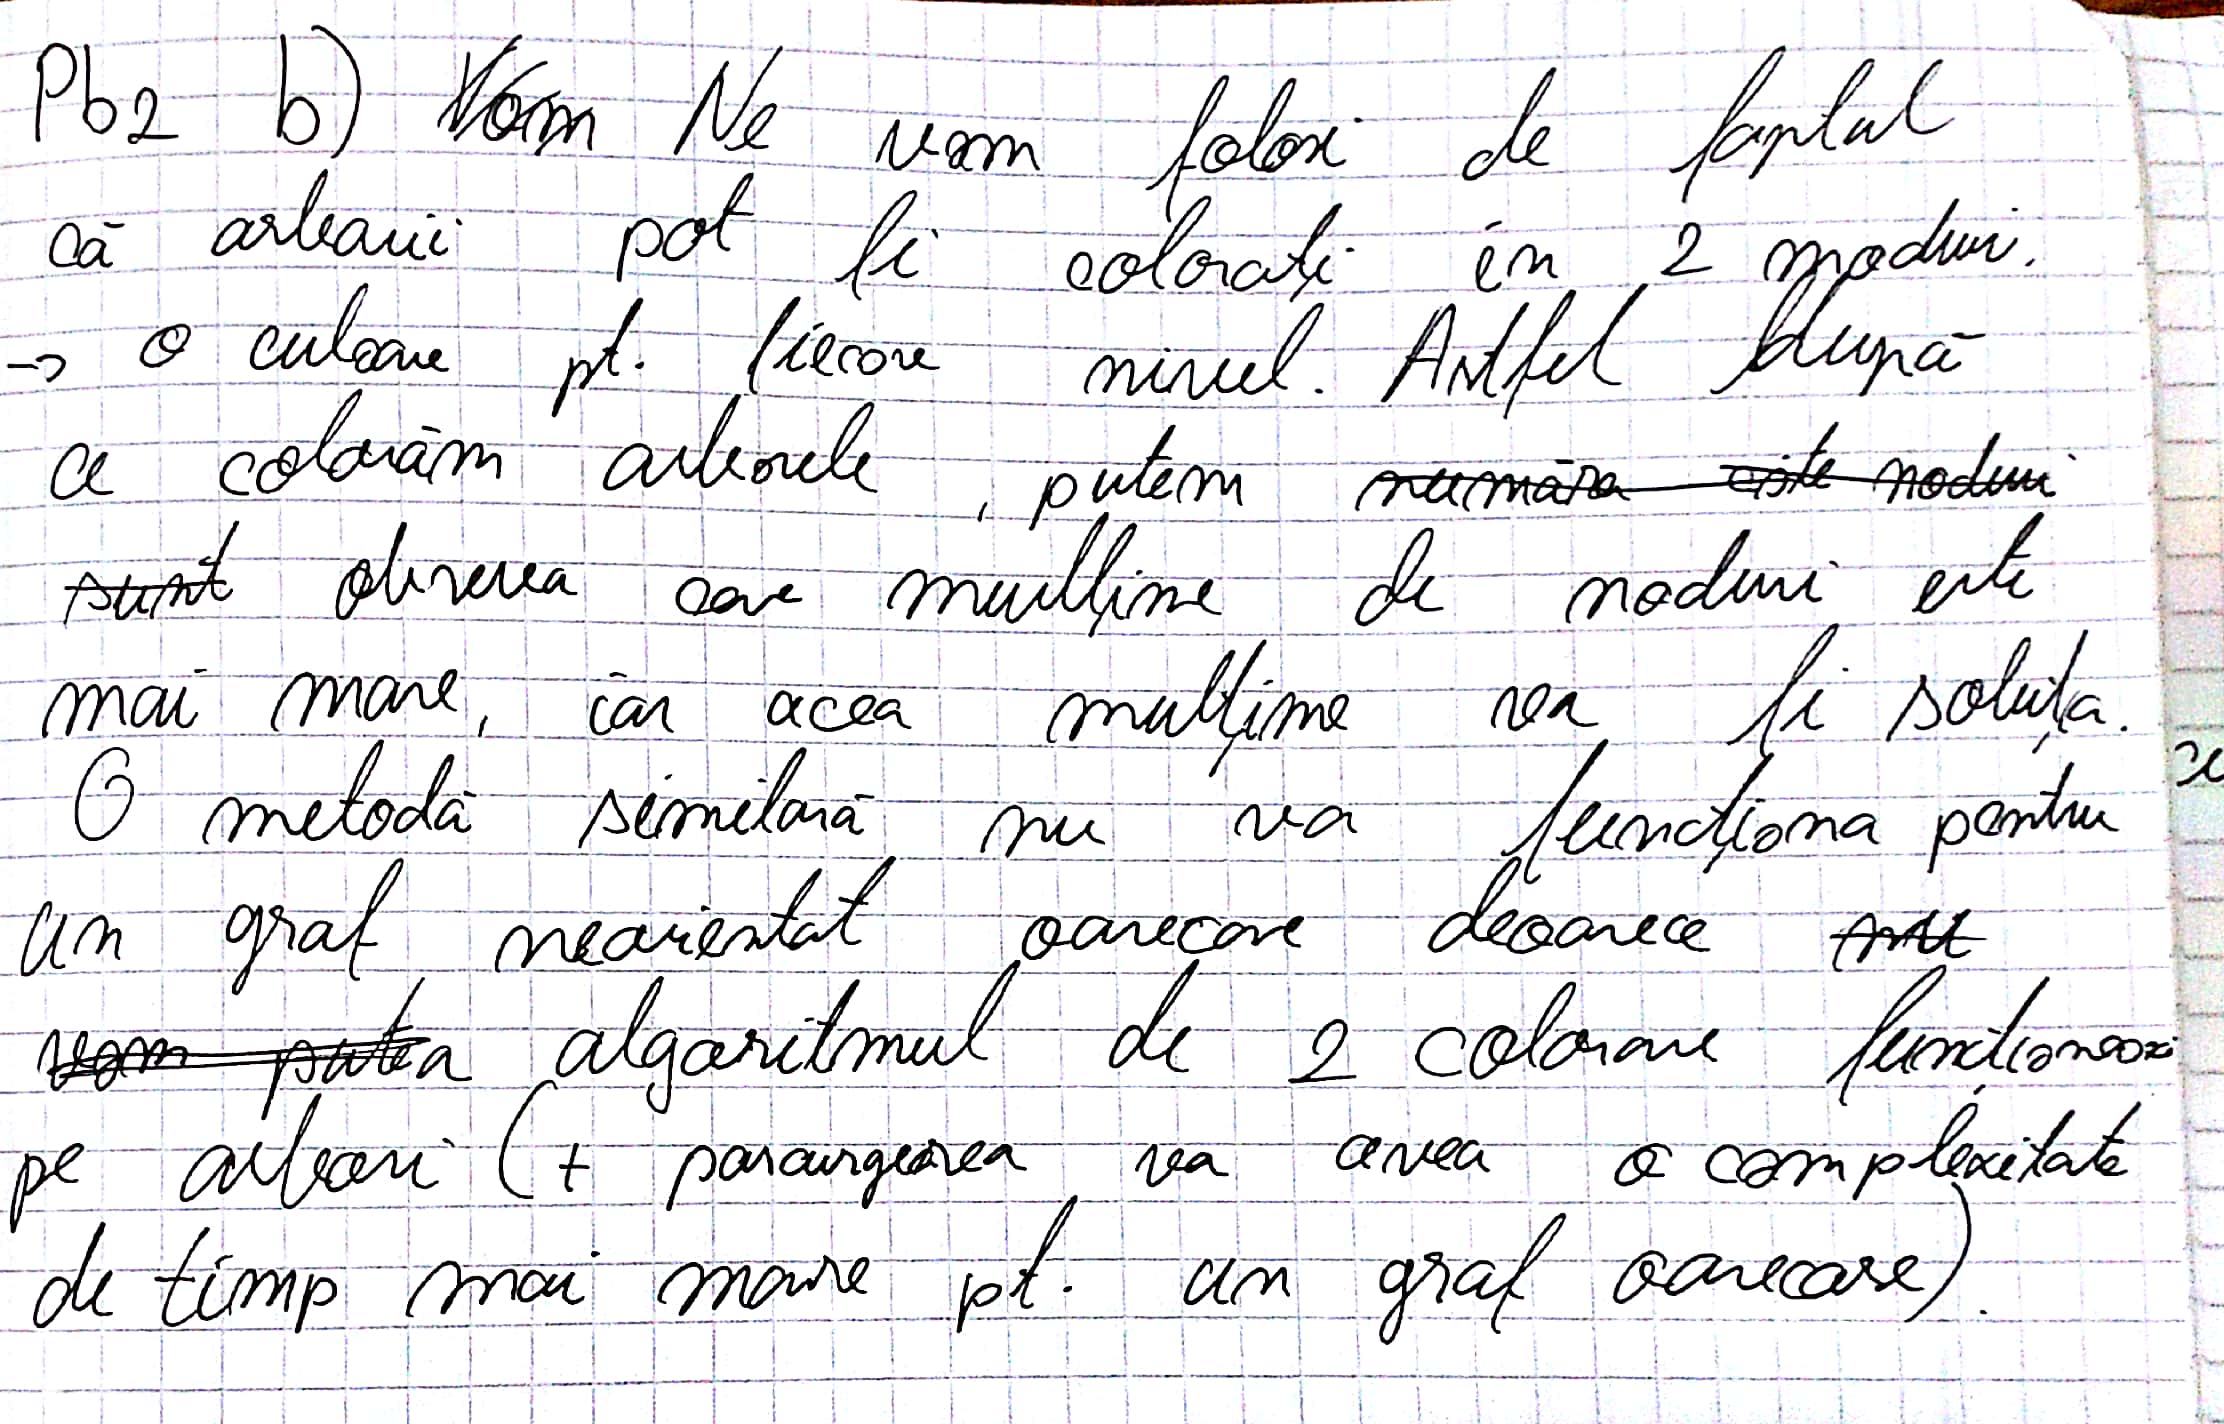 Pb2 b) Vom Ne vom folosi de faptul
că arborii pot fi colorați în 2 moduri.
→ o culoare pt. fiecare nivel. Astfel după
ce colorăm arborele, putem număra câte noduri
sunt observa care mulțime de noduri este
mai mare, iar acea mulțime va fi soluția.
O metodă similară nu va funcționa pentru
un graf neorientat oarecare deoarece nu
vom putea algoritmul de 2 colorare funcționează
pe arbori (+ parcurgerea va avea o complexitate
de timp mai mare pt. un graf oarecare).